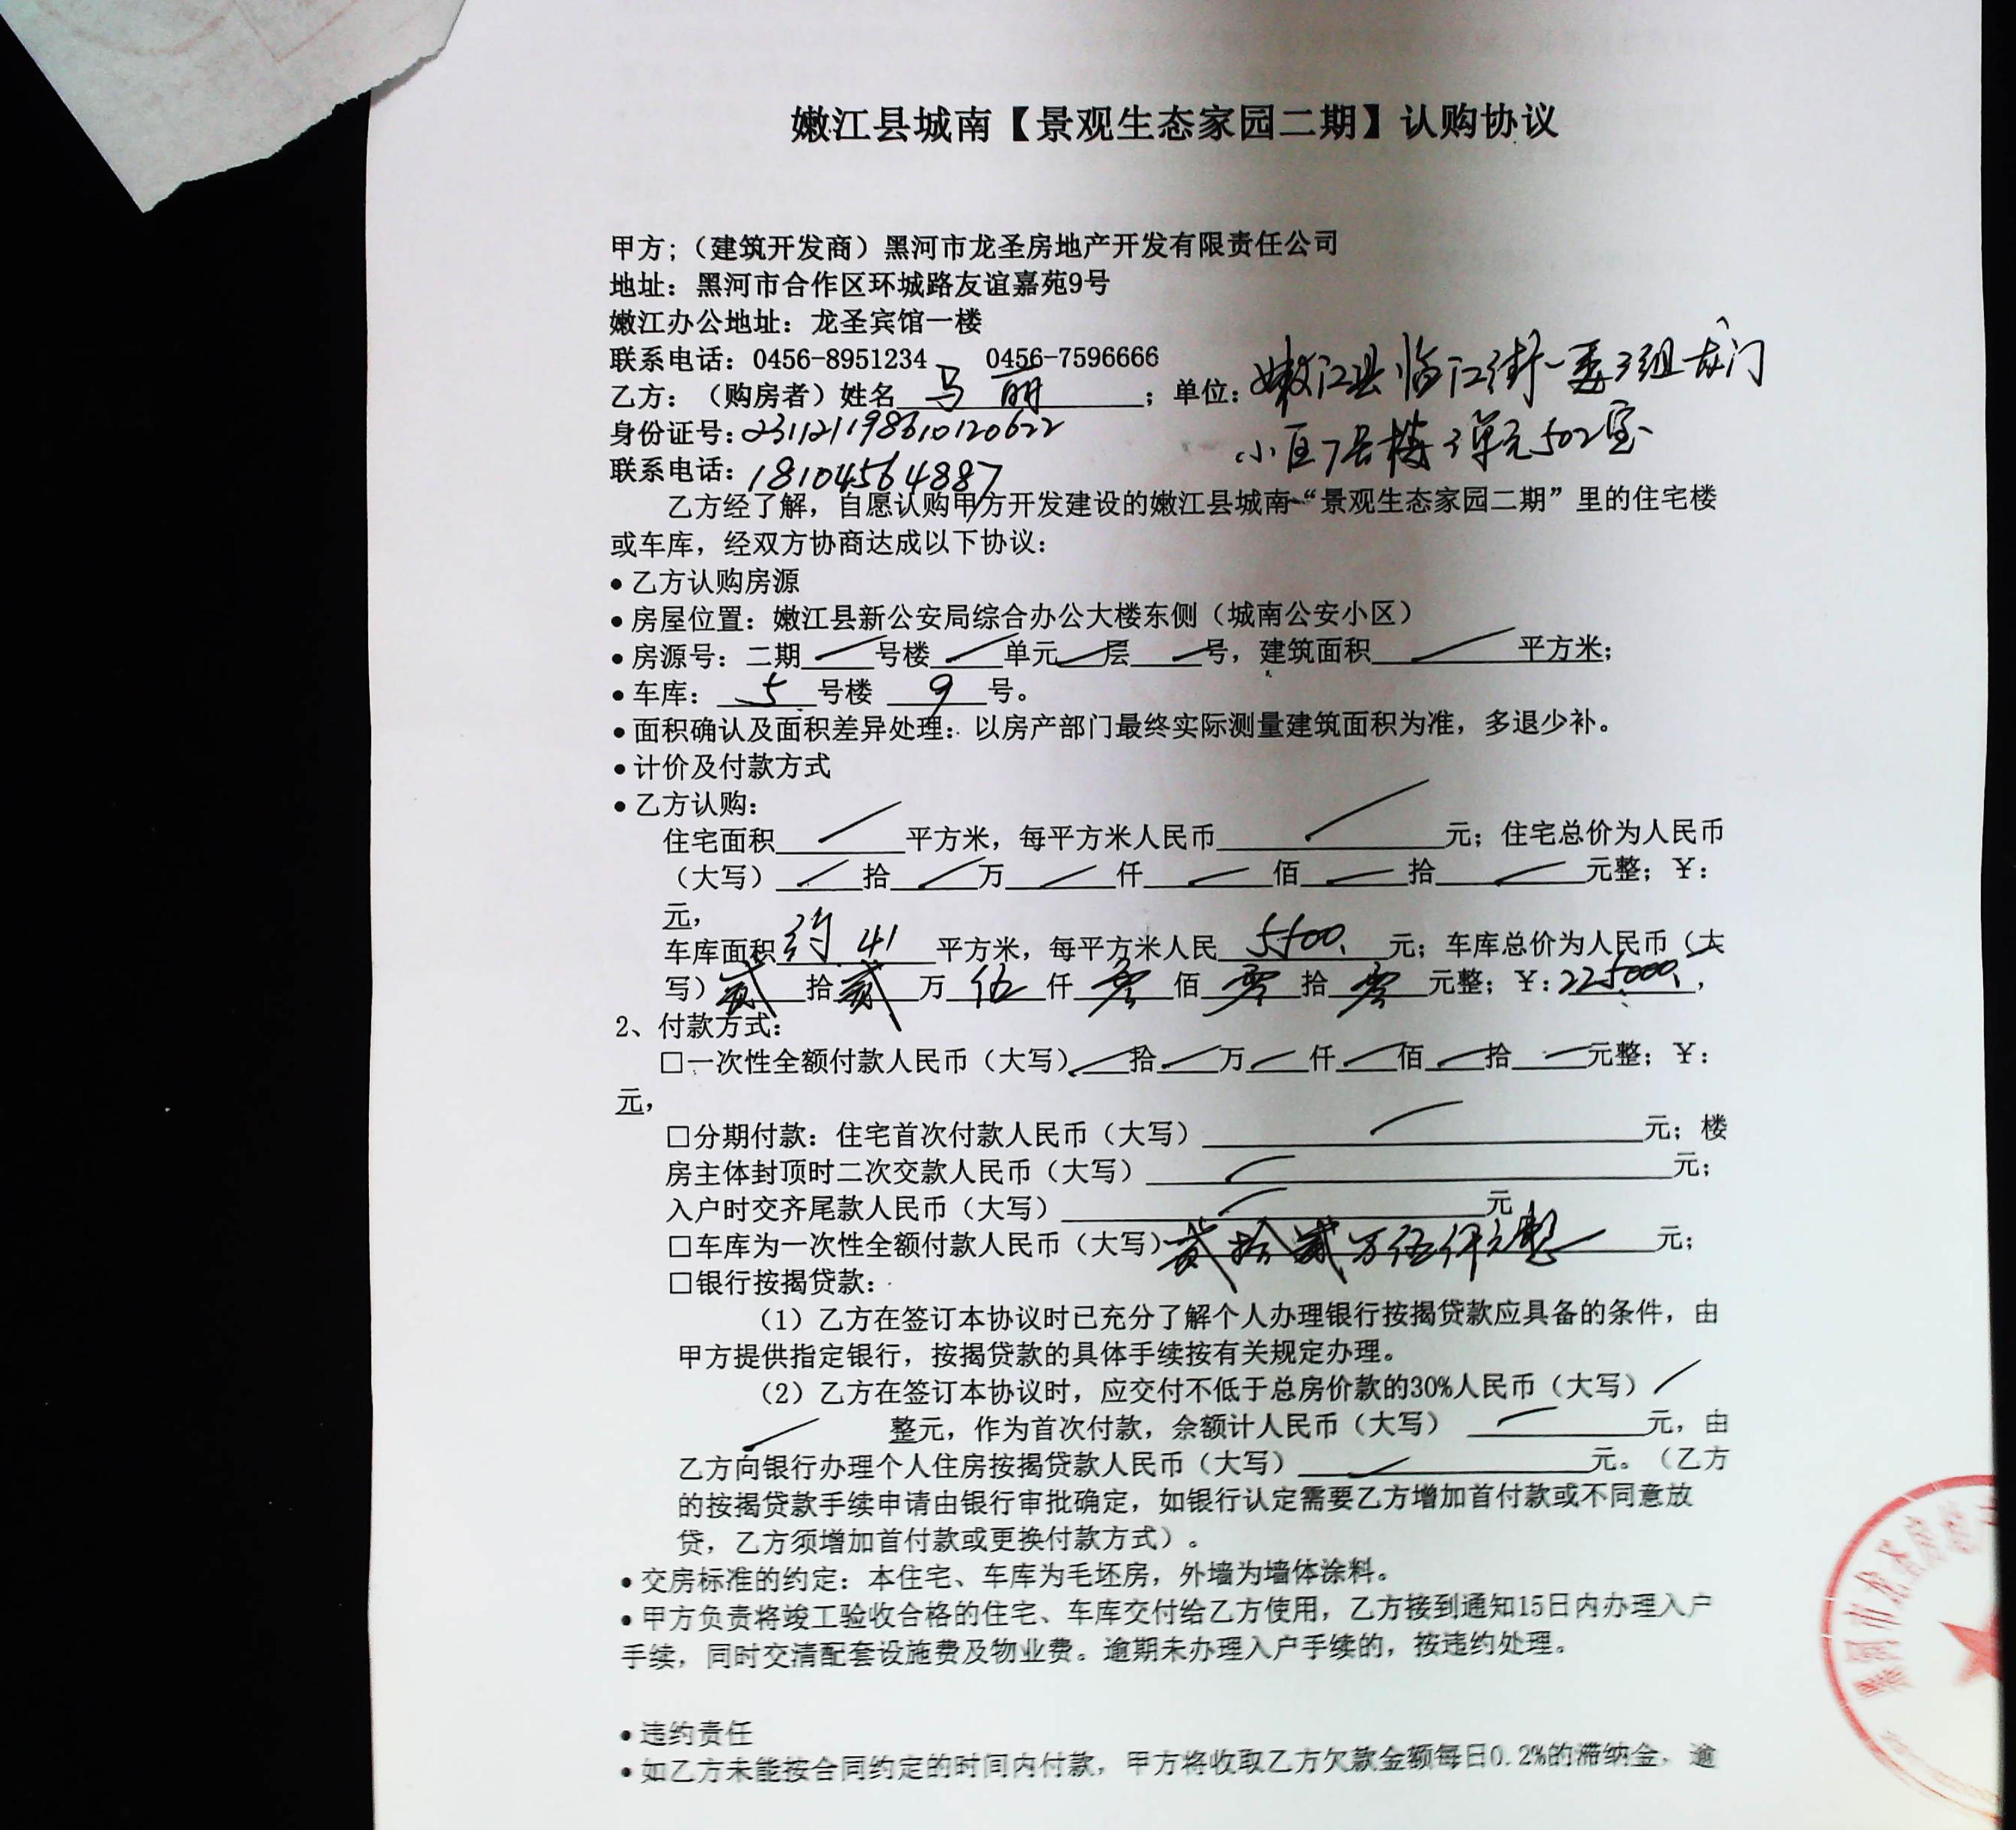 嫩江县城南【景观生态家园二期】认购协议
甲方;（建筑开发商）黑河市龙圣房地产开发有限责任公司
地址：黑河市合作区环城路友谊嘉苑9号
嫩江办公地址：龙圣宾馆一楼
联系电话：0456-8951234 0456-7596666
乙方：（购房者）姓名 马丽 ；单位：嫩江县临江街一委3组龙门
小区7号楼3单元502室
身份证号：231121198610120622
联系电话：18104564887
乙方经了解，自愿认购甲方开发建设的嫩江县城南“景观生态家园二期”里的住宅楼
或车库，经双方协商达成以下协议：
•乙方认购房源
•房屋位置：嫩江县新公安局综合办公大楼东侧（城南公安小区）
•房源号：二期 / 号楼 / 单元 / 层 / 号，建筑面积 / 平方米；
•车库： 5 号楼 9 号。
•面积确认及面积差异处理：以房产部门最终实际测量建筑面积为准，多退少补。
•计价及付款方式
•乙方认购：
住宅面积 / 平方米，每平方米人民币 / 元；住宅总价为人民币
（大写） / 拾 / 万 / 仟 / 佰 / 拾 / 元整；￥：
元，
车库面积 约41 平方米，每平方米人民 5500 元；车库总价为人民币（大
写）贰 拾 贰 万 伍 仟 零 佰 零 拾 零 元整；￥：225000，
2、付款方式：
□一次性全额付款人民币（大写） / 拾 / 万 / 仟 / 佰 / 拾 / 元整；￥：
元，
□分期付款：住宅首次付款人民币（大写） / 元；楼
房主体封顶时二次交款人民币（大写） / 元；
入户时交齐尾款人民币（大写） / 元
□车库为一次性全额付款人民币（大写）贰拾贰万伍仟元整 元；
□银行按揭贷款：
（1）乙方在签订本协议时已充分了解个人办理银行按揭贷款应具备的条件，由
甲方提供指定银行，按揭贷款的具体手续按有关规定办理。
（2）乙方在签订本协议时，应交付不低于总房价款的30%人民币（大写） /
/ 整元，作为首次付款，余额计人民币（大写） / 元，由
乙方向银行办理个人住房按揭贷款人民币（大写） / 元。（乙方
的按揭贷款手续申请由银行审批确定，如银行认定需要乙方增加首付款或不同意放
贷，乙方须增加首付款或更换付款方式）。
•交房标准的约定：本住宅、车库为毛坯房，外墙为墙体涂料。
•甲方负责将竣工验收合格的住宅、车库交付给乙方使用，乙方接到通知15日内办理入户
手续，同时交清配套设施费及物业费。逾期未办理入户手续的，按违约处理。
•违约责任
•如乙方未能按合同约定的时间内付款，甲方将收取乙方欠款金额每日0.2%的滞纳金，逾
黑河市龙圣房地产